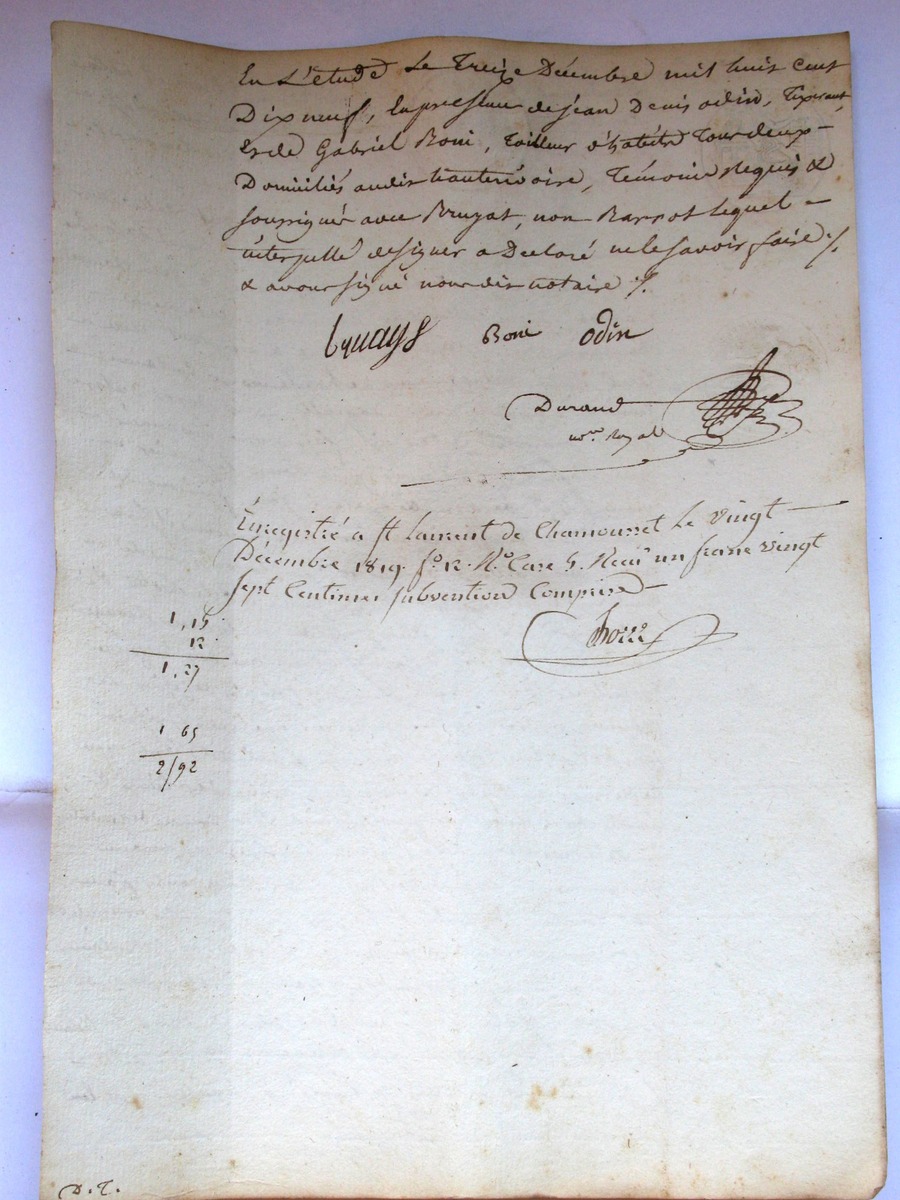 En L'étude Le Treize Décembre mil huit cent
Dix neuf, En presence de jean Denis odin, Tixerant,
Et de Gabriel Boni, Tailleur d'habits Tous deux
Domiciliés audit hauterivoire, Témoins Requis &
soussignés avec Bruyat, non Barrot Lequel
interpellé de signer a Declaré ne le savoir faire ./.
& avons signé nous dit notaire ./.
Boni odin
Durand
no.re Royal
Enregistré a St Laurent de Chamousset Le vingt
Décembre 1819. fo. 12. Ro. Case 5. Reçu un franc vingt
sept Centimes subvention Comprise
1,15
12
1,27
1 65
2/92
D. T.